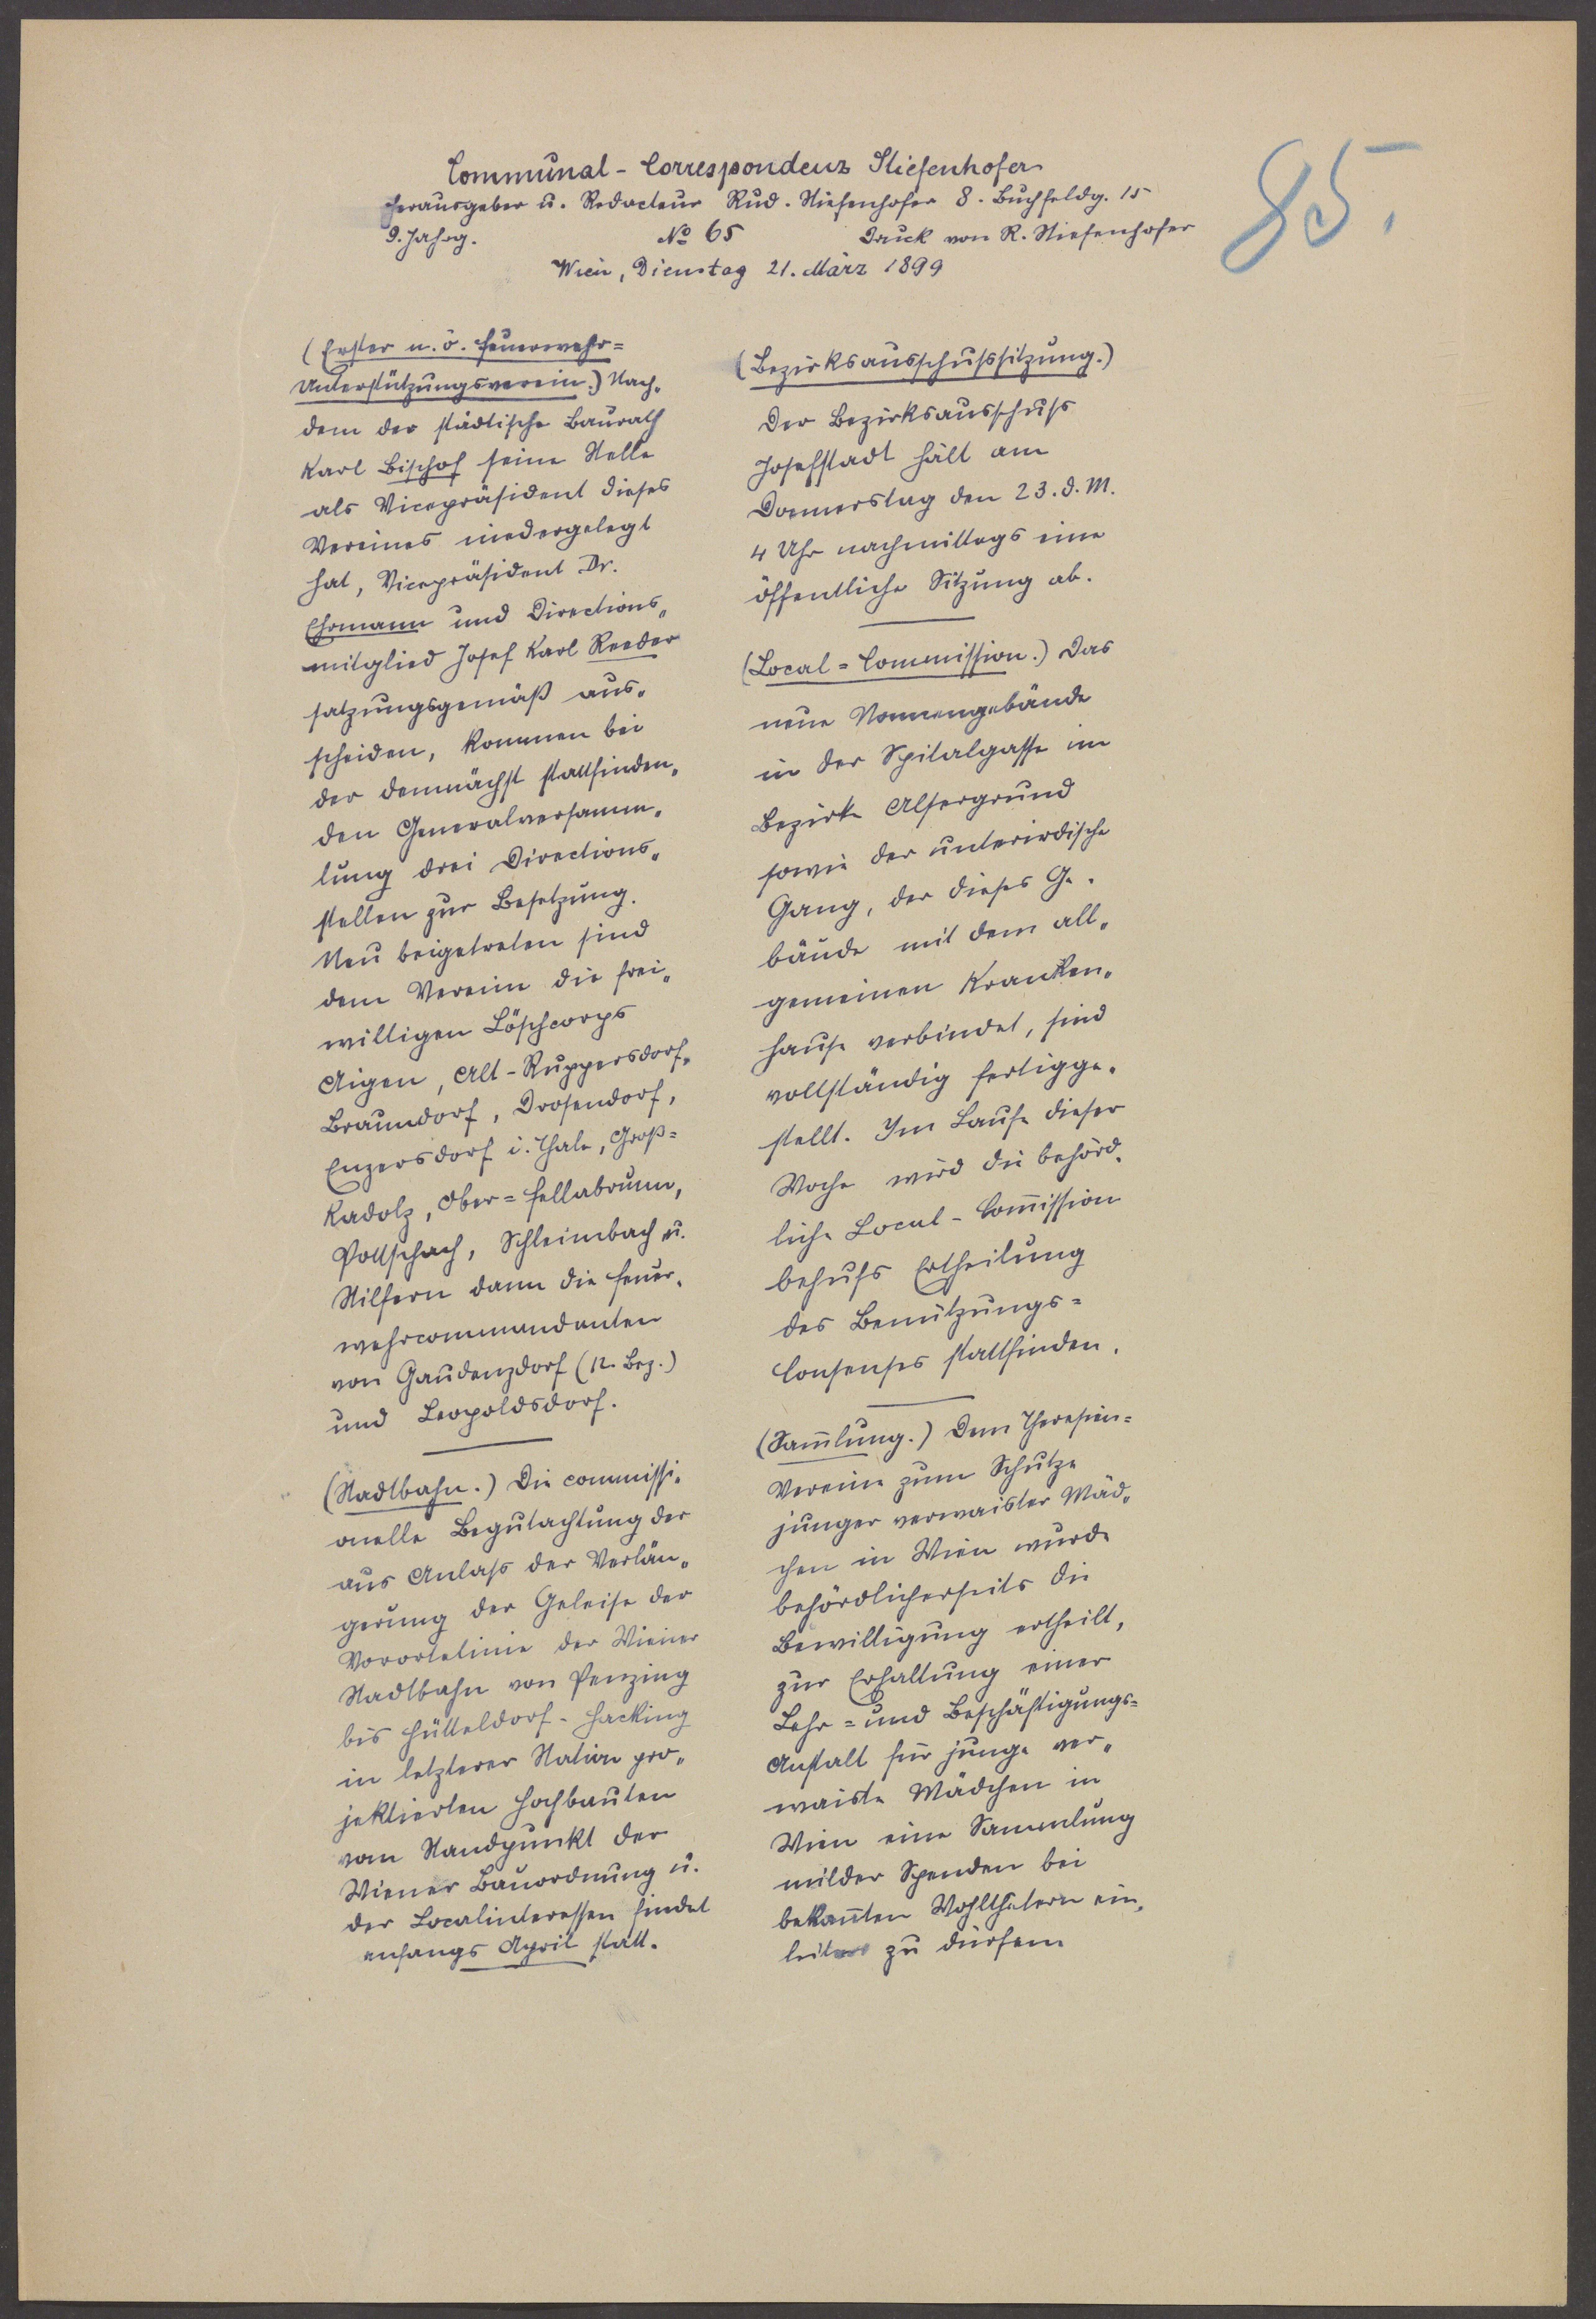 Communal-Correspondenz Stiefenhofer
Herausgeber u. Redacteur Rud. Stiefenhofer 8. Buchfeldg. 15
9. Jahrg. No 65 Druck von R. Stiefenhofer
Wien, Dienstag 21. März 1899
85.
(Erster n. ö. Feuerwehr=
Unterstützungsverein.) Nach„
dem der städtische Baurath
Karl Bischof seine Stelle
als Vicepräsident dieses
Vereines niedergelegt
hat, Vicepräsident Dr.
Ehrmann und Directions„
mitglied Josef Karl Reeder
satzungsgemäß aus„
scheiden, kommen bei
der demnächst stattfinden„
den Generalversamm„
lung drei Directions„
stellen zur Besetzung.
Neu beigetreten sind
dem Verein die frei„
willigen Löschcorps
Aigen, Alt-Ruppersdorf,
Braundorf, Drosendorf,
Enzersdorf i. Thale, Groß=
Kadolz, Ober=Fellabrunn,
Pottschach, Schleinbach u.
Stilfern dann die Feuer„
wehrcommandanten
von Gaudenzdorf (12. Bez.)
und Leopoldsdorf.
(Stadtbahn.) Die commissi„
onelle Begutachtung der
aus Anlass der Verlän„
gerung der Geleise der
Vorortelinie der Wiener
Stadtbahn von Penzing
bis Hütteldorf-Hacking
in letzterer Station pro„
jektierten Hochbauten
vom Standpunkt der
Wiener Bauordnung u.
der Localinteressen findet
anfangs April statt.
(Bezirksausschußsitzung.)
Der Bezirksausschuß
Josefstadt hält am
Donnerstag den 23. d. M.
4 Uhr nachmittags eine
öffentliche Sitzung ab.
(Local=Commission.) Das
neue Nonnengebäude
in der Spitalgasse im
Bezirke Alsergrund
sowie der unterirdische
Gang, der dieses Ge„
bäude mit dem all„
gemeinen Kranken„
hause verbindet, sind
vollständig fertigge„
stellt. Im Laufe dieser
Woche wird die behörd„
liche Local-Com̅ission
behufs Ertheilung
des Benützungs=
Consenses stattfinden.
(Sam̅lung.) Dem Theresien=
Vereine zum Schutze
junger verwaister Mäd„
chen in Wien wurde
behördlicherseits die
Bewilligung ertheilt,
zur Erhaltung einer
Lehr= und Beschäftigungs=
Anstalt für junge ver„
waiste Mädchen in
Wien eine Sammlung
milder Spenden bei
bekan̅ten Wohlthätern ein„
leiten zu dürfen